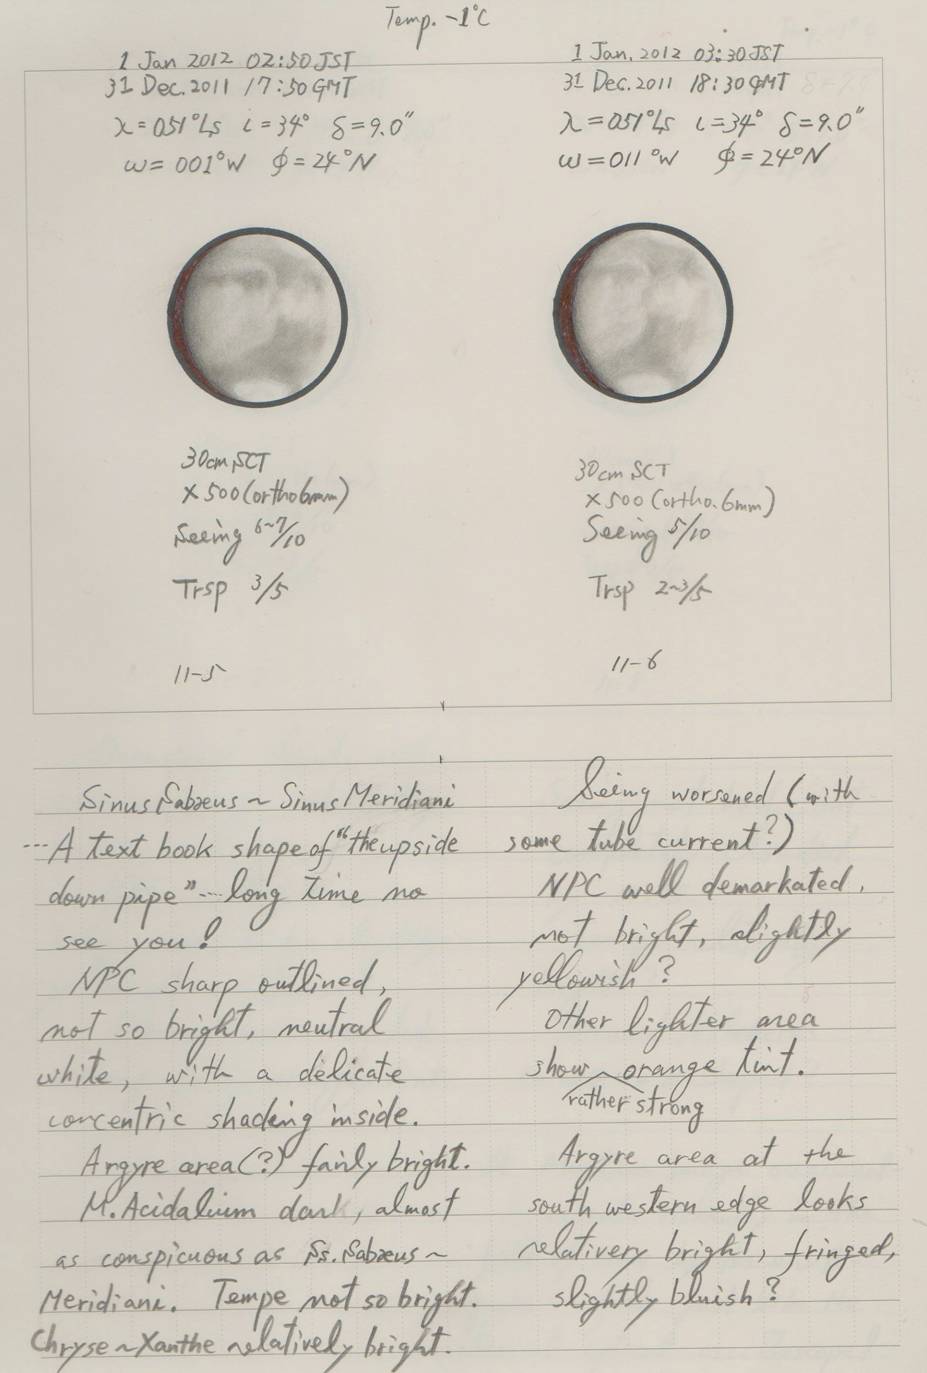 Temp. -1°C
1 Jan 2012 02:50 JST
31 Dec. 2011 17:50 GMT
λ=051°Ls ι=34° δ=9.0"
ω=001°W φ=24°N
30cm SCT
×500 (ortho 6mm)
Seeing 6~7/10
Trsp 3/5
11-5
1 Jan. 2012 03:30 JST
31 Dec. 2011 18:30 GMT
λ=051°Ls ι=34° δ=9.0"
ω=011°W φ=24°N
30cm SCT
×500 (ortho. 6mm)
Seeing 5/10
Trsp 2~3/5
11-6
Sinus Sabaeus ~ Sinus Meridiani
...A text book shape of "the upside
down pipe"...long time no
see you!
NPC sharp outlined,
not so bright, neutral
white, with a delicate
concentric shading inside.
Argyre area(?) fairly bright.
M. Acidalium dark, almost
as conspicuous as Ss. Sabaeus ~
Meridiani. Tempe not so bright.
Chryse ~ Xanthe relatively bright.
Seeing worsened (with
some tube current?)
NPC well demarkated,
not bright, slightly
yellowish?
Other lighter area
show orange tint.
rather strong
Argyre area at the
south western edge looks
relativery bright, fringed,
slightly bluish?